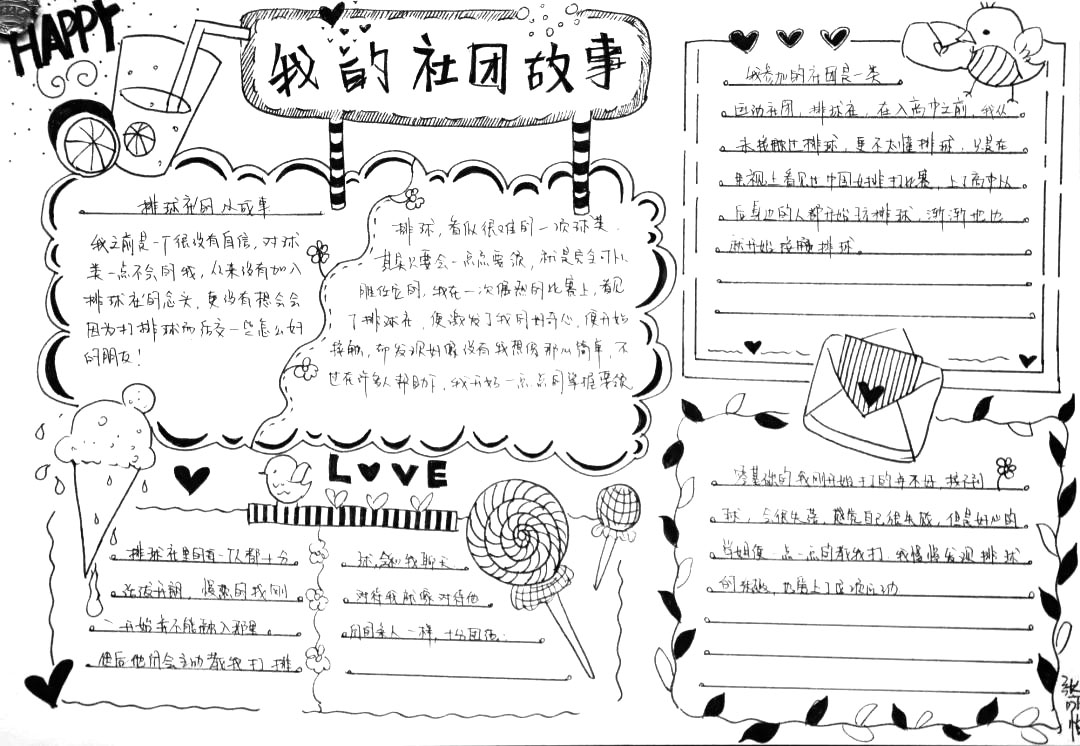 HAPPY
我的社团故事
排球社的小故事
我之前是一个很没有自信，对球
类一点不会的我，从来没有加入
排球社的念头，更没有想会会
因为打排球而后交一些怎么好
的朋友！
排球，看似很难的一项球类，
其实只要会一点点要领，就是完全可以
胜任它的，我在一次偶然的比赛上，看见
了排球社，便激发了我的好奇心，便开始
接触，却发现好像没有我想像那么简单，不
过在许多人帮助下，我开始一点点的掌握要领
我参加的社团是一类
运动社团，排球社，在入高中之前，我从
未接触过排球，更不太懂排球，只是在
电视上看见过中国女排打比赛，上了高中以
后身边的人都开始玩排球，渐渐地也
就开始接触排球。
LOVE
排球社里的有一丁人都十分
活泼开朗，慢热的我刚
一开始并不能融入那里。
但后他们会主动教我打排
球，和我聊天
对待我就像对待他
们的亲人一样，十分团结。
零基础的我刚开始打的并不好，接不到
球，会很失落，感觉自己很失败，但是好心的
学姐便一点一点的教我打，我慢慢发现排球
的乐趣，也爱上了这项运动